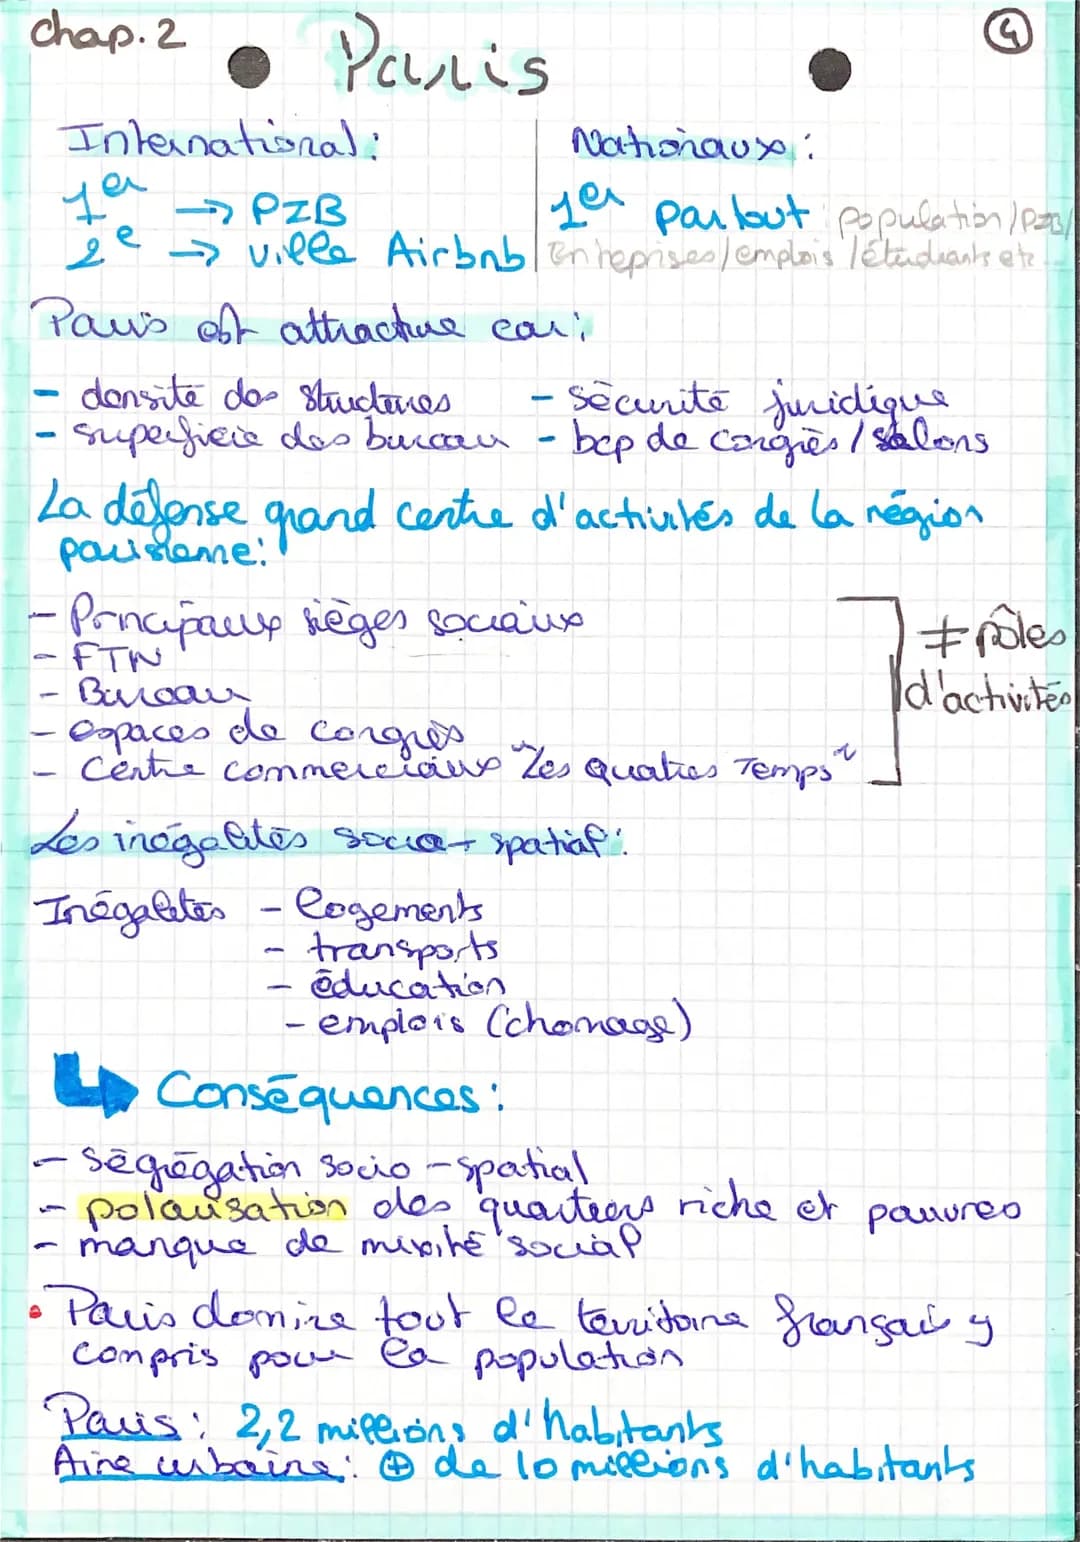 chap. 2
4
Paris
International :
1er → PIB
2e → ville Airbnb
Nationaux :
1er partout population / PIB /
Entreprises / emplois / étudiants etc
Paris est attractive car :
- densité des structures
- superficie des bureau
- sécurité juridique
- bcp de congrès / salons
La défense grand centre d'activités de la région
parisienne :
- Principaux sièges sociaux
- FTN
- Bureau
- espaces de congrès
- Centre commerciaux "Les quatres Temps"
≠ pôles
d'activités
Les inégalités socio-spatial :
Inégalités - logements
- transports
- éducation
- emplois (chomage)
Conséquences :
- ségrégation socio-spatial
- polarisation des quartiers riche et pauvres
- manque de mixité social
• Paris domine tout le territoire français y
compris pour la population
Paris : 2,2 millions d'habitants
Aire urbaine : ⊕ de 10 millions d'habitants